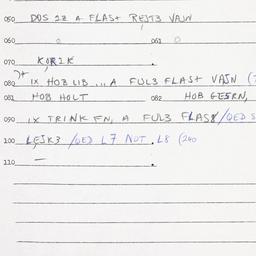 050 DOS 22 A FLASt REJT3 VAJN
060 0 061 0
070 KOR2K .
080 IX HOB LIB ... A FUL3 FLASt VAJN (
081 HOB HOLT 082 HOB GESRN,
090 IX TRINK FN, A FUL3 FLASt/QED S
100 LEJK3/QED L7 NOT. L8 (240
110 — .